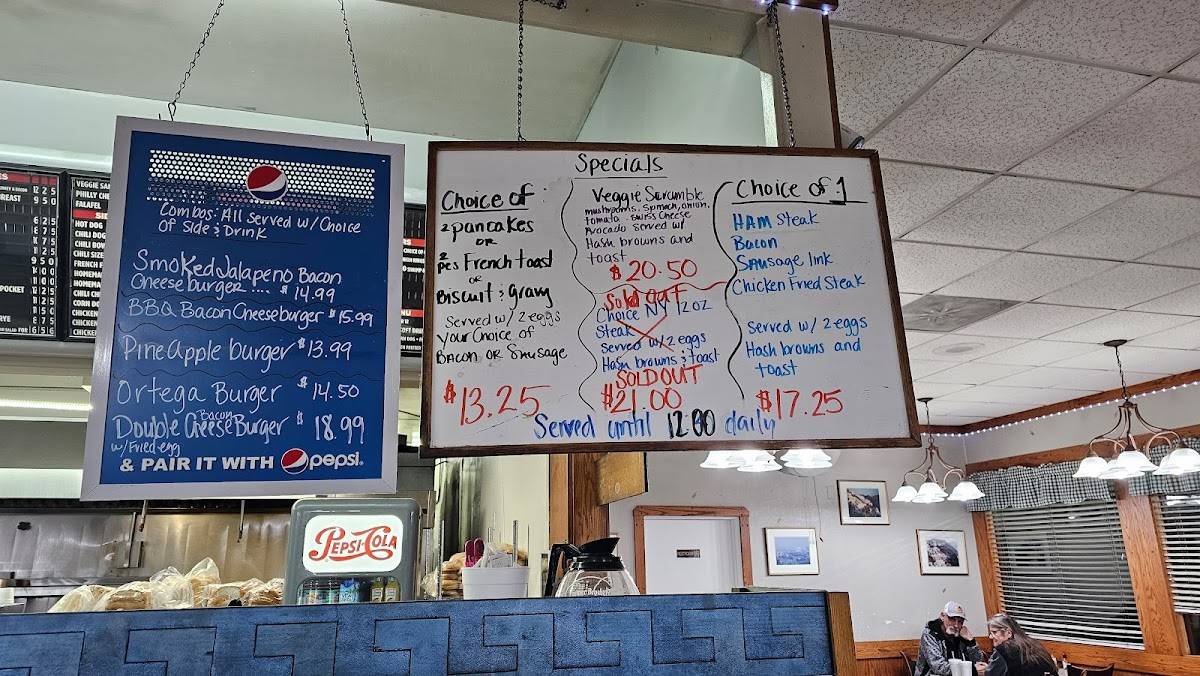 Combos: All Served w/ Choice
of Side & Drink
Smoked Jalapeno Bacon
Cheeseburger .... $14.99
BBQ Bacon Cheeseburger $15.99
PineApple burger $13.99
Ortega Burger $14.50
Double Bacon Cheese Burger $18.99
w/ Fried egg
& PAIR IT WITH pepsi.
PEPSI-COLA
Specials
Choice of:
2 pancakes
OR
2 pcs French toast
or
Biscuit & gravy
Served w/ 2 eggs
Your Choice of
Bacon or Sausage
$13.25
Veggie Scrumble
mushrooms. Spinach, onion.
tomato. Swiss Cheese
Avocado Served w/
Hash browns and
toast
$20.50
Sold out
Choice NY 12oz
Steak
Served w/ 2 eggs
Hash browns & toast
SOLD OUT
$21.00
Choice of 1
HAM Steak
Bacon
Sausage link
Chicken Fried Steak
Served w/ 2 eggs
Hash browns and
toast
$17.25
Served until 12:00 daily
VEGGIE
PHILLY CHE
FALAFEL
HOT DOG
CHILI DOG